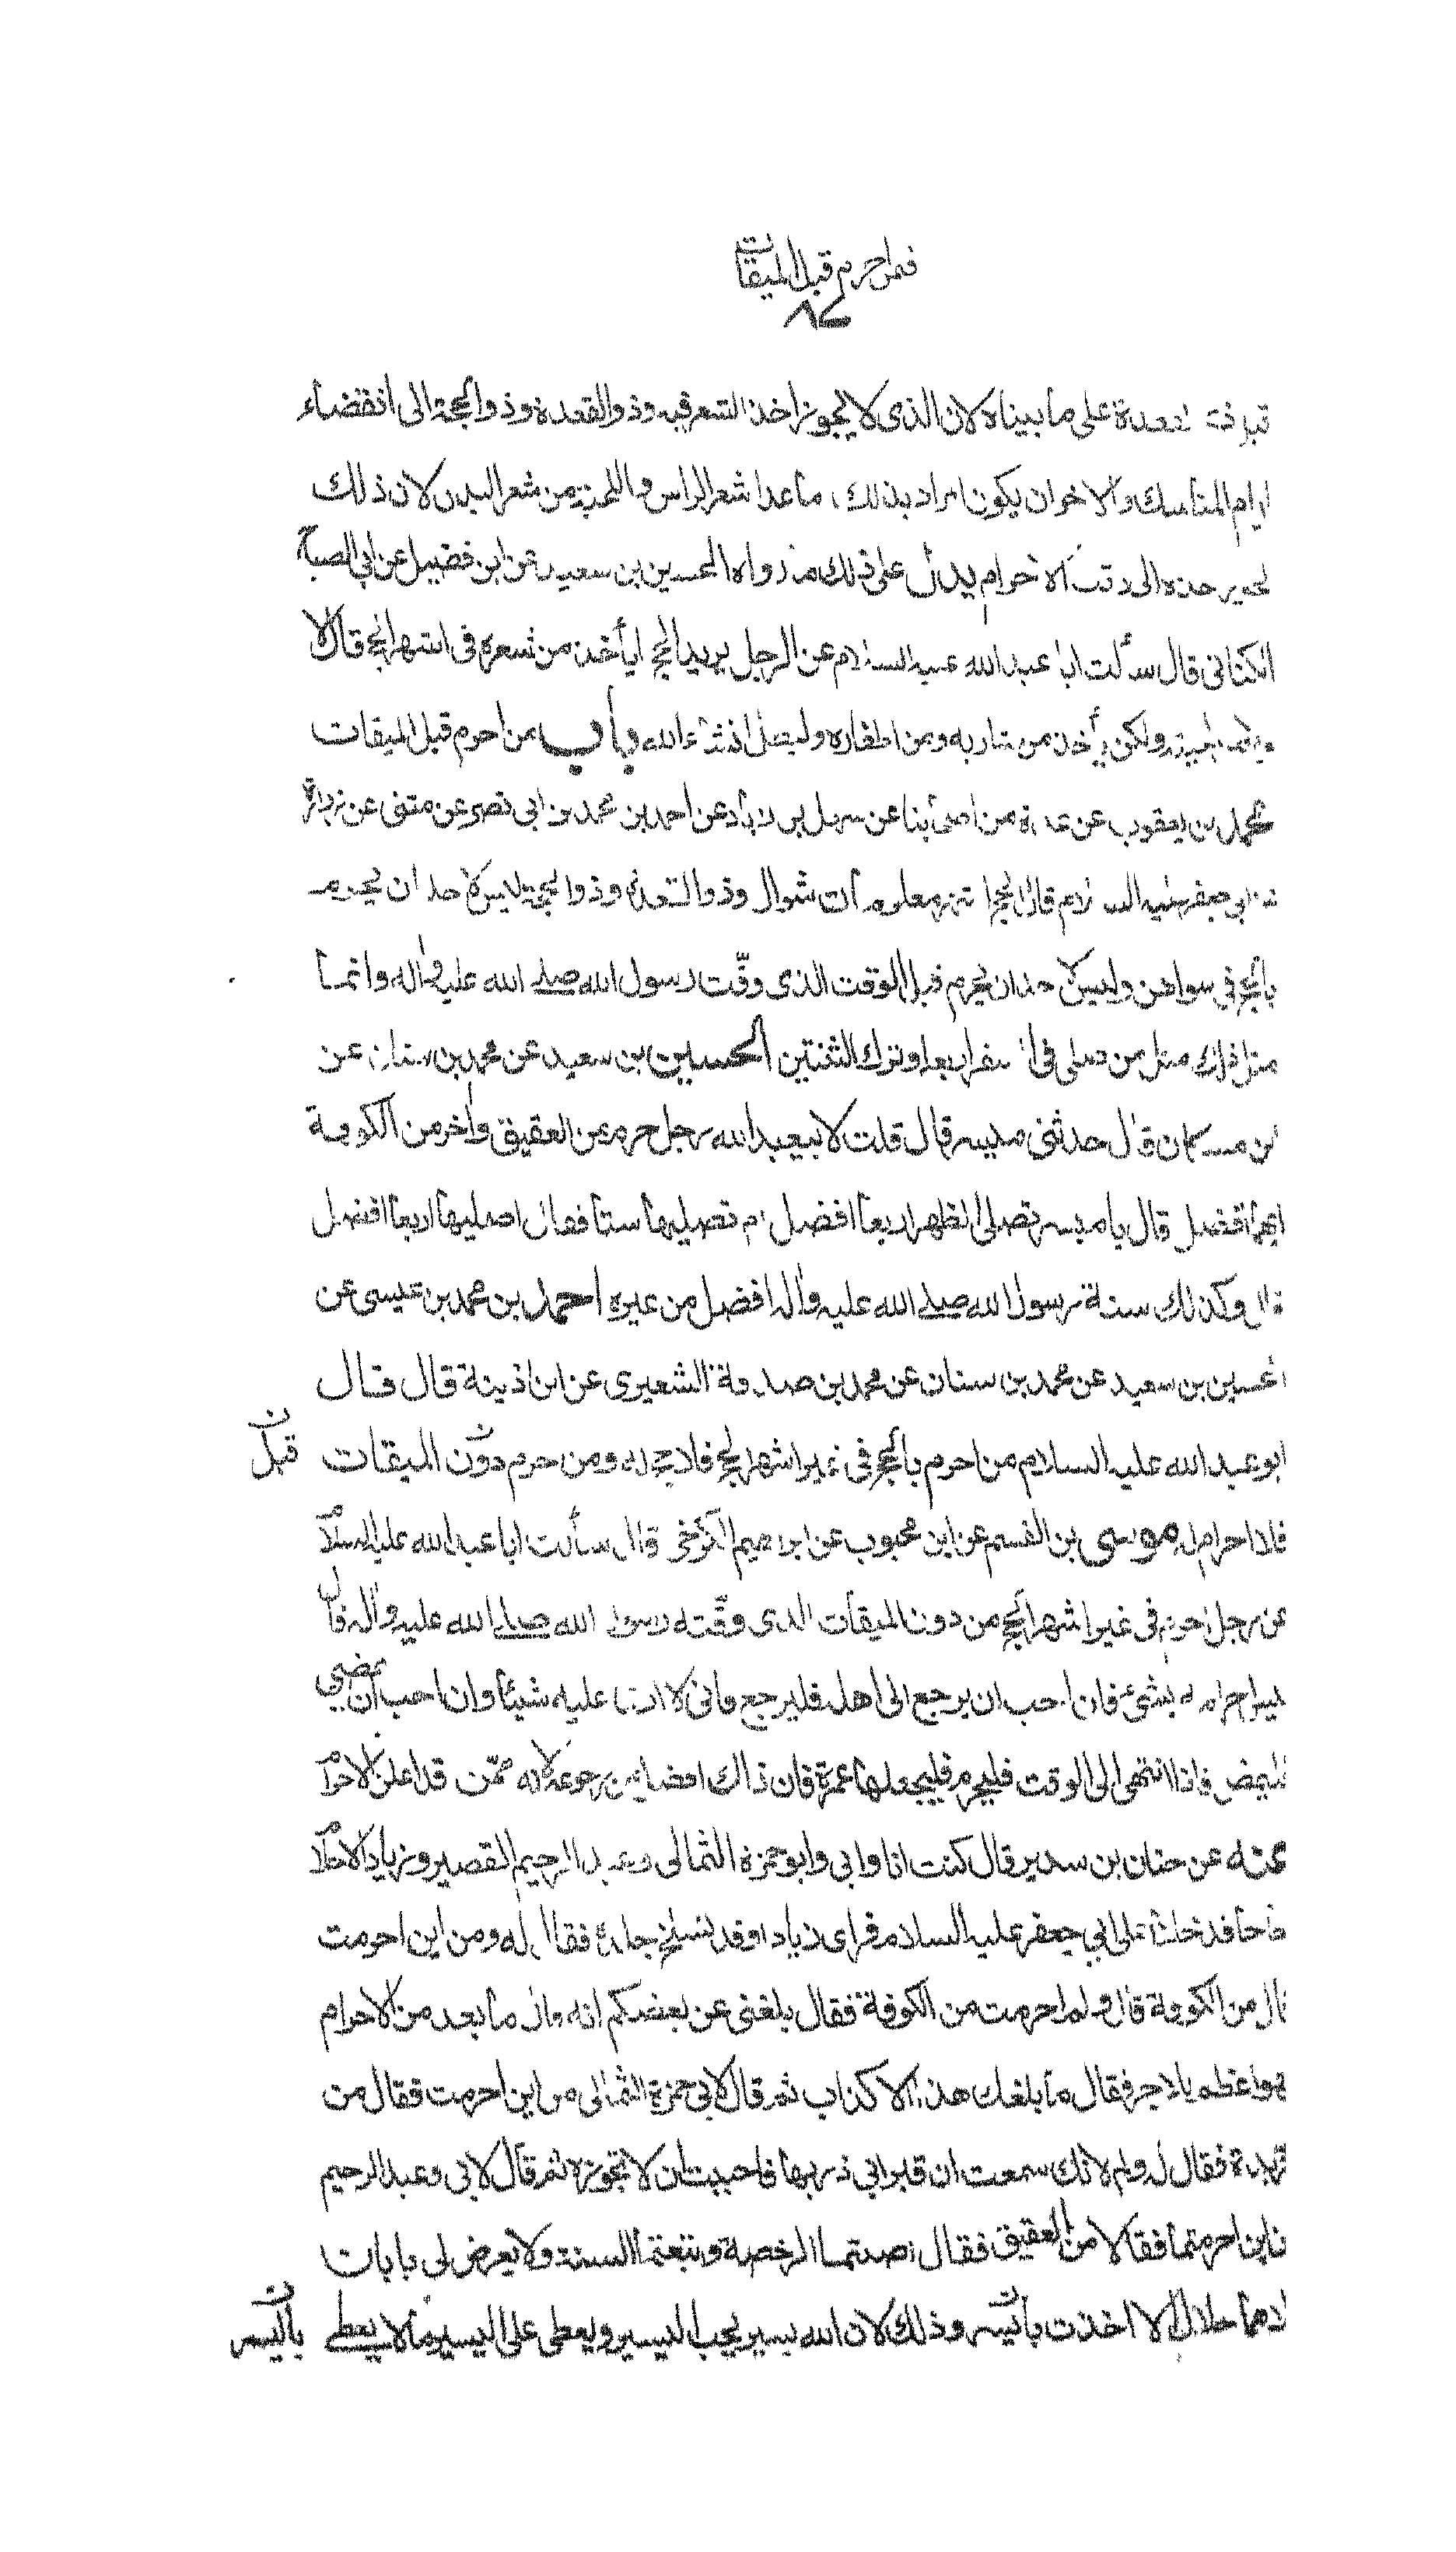 فيمن احرم قبل الميقات
٨٤
القعدة على ما بيناه لان الذى لا يجوز اخذ الشعر فيه وذو القعدة وذو الحجة الى انقضاء
ايام المناسك والاخر ان يكون المراد بذلك ما عدا شعر الراس واللحية من شعر البدن لان ذلك
حده الى وقت الاحرام يدل على ذلك ما رواه الحسين بن سعيد عن ابن فضيل عن ابي الصباح
الكنانى قال سألت ابا عبد الله عليه السلام عن الرجل يريد الحج ايأخذ من شعره فى اشهر الحج قال لا
ولا من لحيته ولكن يأخذ من شاربه ومن اظفاره وليصل ان شاء الله باب من احرم قبل الميقات
محمد بن يعقوب عن عدة من اصحأبنا عن سهل بن زياد عن احمد بن محمد بن ابى نصر عن مثنى عن زرارة
عن ابي جعفر عليه السلام قال الحج اشهر معلومات شوال وذو القعدة وذو الحجة ليس لاحد ان يحرم
بالحج فى سواهن وليس لاحد ان يحرم قبل الوقت الذى وقّت رسول الله صلى الله عليه واله وانمـا
مثل ذلك مثل من صلى فى السفر اربعا وترك الثنتين الحسين بن سعيد عن محمد بن سنان عن
ابن مسكان قال حدثنى ميسر قال قلت لابيعبد الله رجل احرم من العقيق واخر من الكوفة
ايهما افضل قال يا ميسر تصلى الظهر اربعا افضل ام تصليها ستا فقال اصليها اربعا افضل
قال وكذلك سنة رسول الله صلى الله عليه واله افضل من غيره احمد بن محمد بن عيسى عن
الحسين بن سعيد عن محمد بن سنان عن محمد بن صدقة الشعيرى عن ابن اذينة قال قال
ابو عبد الله عليه السلام من احرم بالحج فى غير اشهر الحج فلا حج له ومن احرم دون الميقات قبل ن
فلا احرام له موسى بن القسم عن ابن محبوب عن ابراهيم الكرخى قال سألت ابا عبد الله عليه السلام
عن رجل احرم فى غير اشهر الحج من دون الميقات الذى وقّته رسول الله صلى الله عليه واله قال
ليس احرامه بشئ فان احب ان يرجع الى اهله فليرجع فانى لا ارى عليه شيئا وان احب ان يمضى
فليمض فاذا انتهى الى الوقت فليحرم فليجعلها عمرة فان ذلك افضل من رجوعه لانه ممّن قد اعلن الاحرام
عنه عن حنان بن سدير قال كنت انا وابى وابو حمزة الثمالى وعبد الرحيم القصير وزياد الاحلام
حجاجا فدخلنا على ابي جعفر عليه السلام فراى زيادا وقد تسلخ جلده فقال له ومن اين احرمت
قال من الكوفة قال ولم احرمت من الكوفة فقال بلغنى عن بعضكم انه قال ما بعد من الاحرام
فهو اعظم للاجر فقال ما بلغك هذا الا كذاب ثم قال لابي حمزة الثمالى من اين احرمت فقال من
الربذة فقال له ولم لانك سمعت ان قبر ابي ذر بها فاحببت ان لا تجوزه ثم قال لابى وعبد الرحيم
من اين احرمتما فقالا من العقيق فقال اصبتمـا الرخصة واتبعتما السنة ولا يعرض لى بابان
كلاهما حلال الا اخذت باليسر وذلك لان الله يسير يحب اليسير ويعطى على اليسير ما لا يعطى باليسير ن